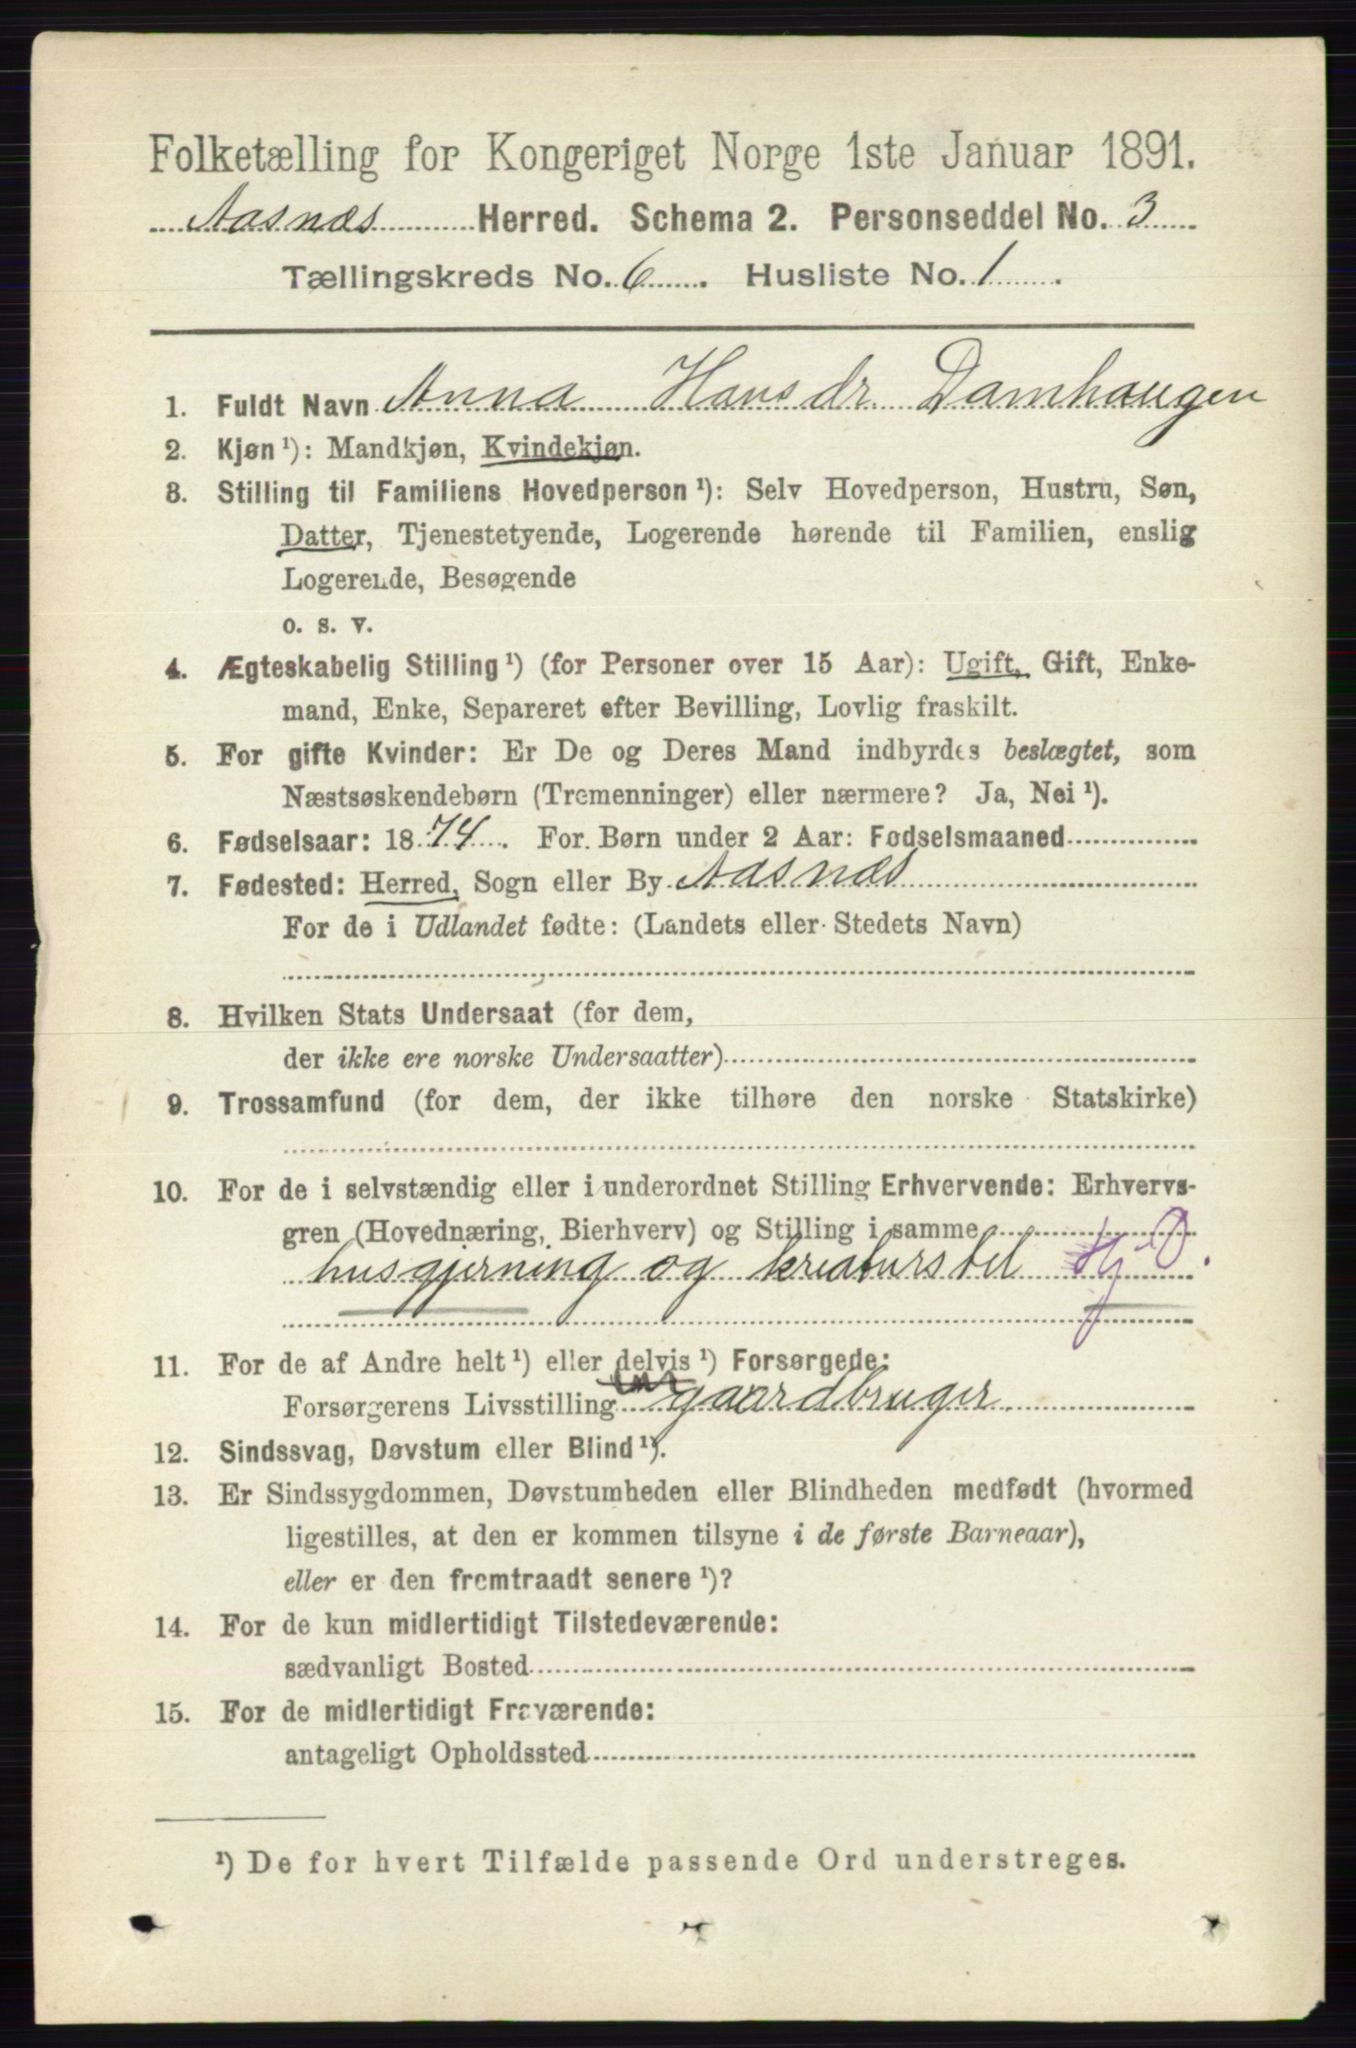 Folketælling for Kongeriget Norge 1ste Januar 1891.
Aasnæs Herred. Schema 2. Personseddel No. 3
Tællingskreds No. 6. Husliste No. 1.
1. Fuldt Navn Anna Hansdr. Damhaugen
2. Kjøn ¹): Mandkjøn, Kvindekjøn.
3. Stilling til Familiens Hovedperson ¹): Selv Hovedperson, Hustru, Søn,
Datter, Tjenestetyende, Logerende hørende til Familien, enslig
Logerende, Besøgende
o. s. v.
4. Ægteskabelig Stilling ¹) (for Personer over 15 Aar): Ugift, Gift, Enke-
mand, Enke, Separeret efter Bevilling, Lovlig fraskilt.
5. For gifte Kvinder: Er De og Deres Mand indbyrdes beslægtet, som
Næstsøskendebørn (Tremenninger) eller nærmere? Ja, Nei ¹).
6. Fødselsaar: 1874. For Børn under 2 Aar: Fødselsmaaned
7. Fødested: Herred, Sogn eller By Aasnæs
For de i Udlandet fødte: (Landets eller Stedets Navn)
8. Hvilken Stats Undersaat (for dem,
der ikke ere norske Undersaatter)
9. Trossamfund (for dem, der ikke tilhøre den norske Statskirke)
10. For de i selvstændig eller i underordnet Stilling Erhvervende: Erhvervs-
gren (Hovednæring, Bierhverv) og Stilling i samme
husgjerning og kreaturstel Hj D.
11. For de af Andre helt ¹) eller delvis ¹) Forsørgede:
Forsørgerens Livsstilling gaardbruger
12. Sindssvag, Døvstum eller Blind ¹).
13. Er Sindssygdommen, Døvstumheden eller Blindheden medfødt (hvormed
ligestilles, at den er kommen tilsyne i de første Barneaar),
eller er den fremtraadt senere ¹)?
14. For de kun midlertidigt Tilstedeværende:
sædvanligt Bosted
15. For de midlertidigt Fraværende:
antageligt Opholdssted
¹) De for hvert Tilfælde passende Ord understreges.